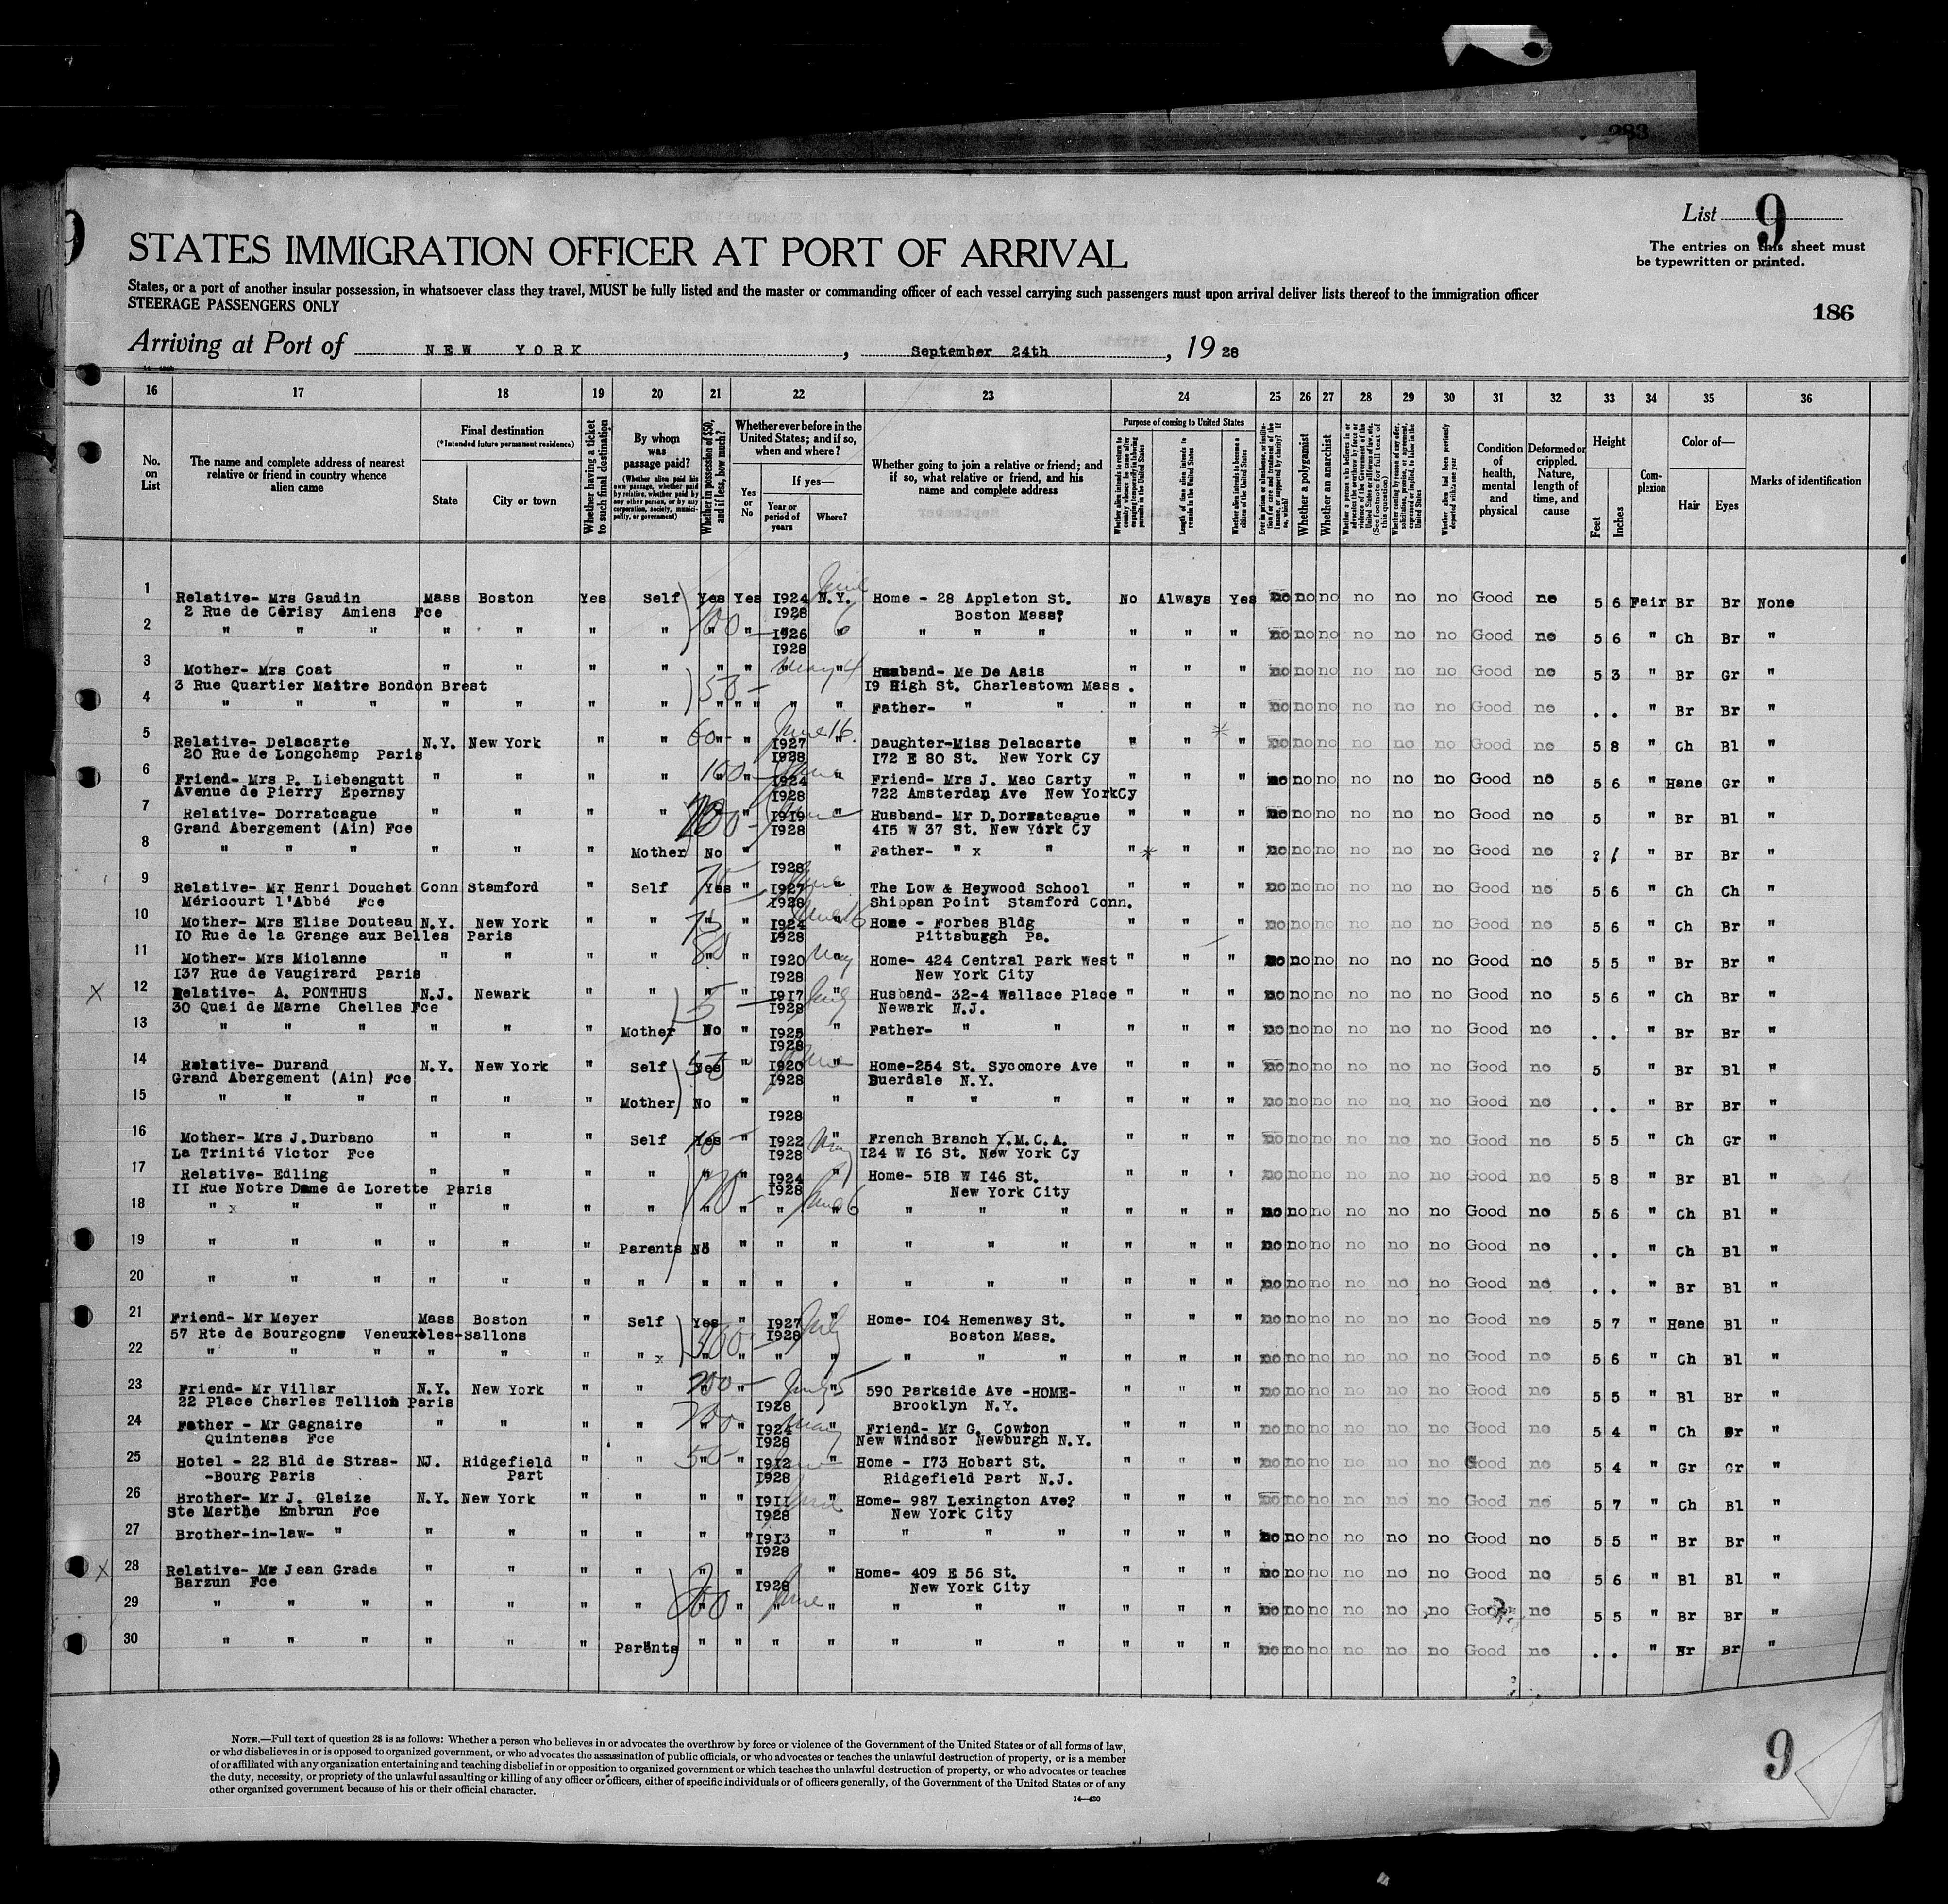 283
List 9
9
The entries on this sheet must
be typewritten or printed.
STATES IMMIGRATION OFFICER AT PORT OF ARRIVAL
States, or a port of another insular possession, in whatsoever class they travel, MUST be fully listed and the master or commanding officer of each vessel carrying such passengers must upon arrival deliver lists thereof to the immigration officer
STEERAGE PASSENGERS ONLY
186
Arriving at Port of NEW YORK , September 24th , 19 28
16 17 18 19 20 21 22 23 24 25 26 27 28 29 30 31 32 33 34 35 36
No. on List
The name and complete address of nearest relative or friend in country whence alien came
Final destination
(*Intended future permanent residence)
State
City or town
Whether having a ticket to such final destination
By whom was passage paid?
(Whether alien paid his own passage, whether paid by relative, whether paid by any other person, or by any corporation, society, municipality, or government)
Whether in possession of $50, and if less, how much?
Whether ever before in the United States; and if so, when and where?
Yes or No
If yes—
Year or period of years
Where?
Whether going to join a relative or friend; and if so, what relative or friend, and his name and complete address
Purpose of coming to United States
Length of time alien intends to remain in the United States
Whether alien intends to become a citizen of the United States
Whether a polygamist
Whether an anarchist
Condition of health, mental and physical
Deformed or crippled. Nature, length of time, and cause
Height
Feet
Inches
Complexion
Color of—
Hair
Eyes
Marks of identification
1 Relative- Mrs Gaudin Mass Boston Yes Self Yes Yes 1924 N.Y. Home - 28 Appleton St. No Always Yes no no no no no no Good no 5 6 Fair Br Br None
2 Rue de Cerisy Amiens Fce 1928 Boston Mass?
2 " " " " " " " " " 1926 " " " " " " " no no no no no no Good no 5 6 " Ch Br "
1928
3 Mother- Mrs Coat " " " " " " " Husband- Me De Asis " " " no no no no no no Good no 5 3 " Br Gr "
3 Rue Quartier Maitre Bondon Brest 19 High St. Charlestown Mass .
4 " " " " " " " " " " " Father- " " " " " no no no no no no Good no . . " Br Br "
5 Relative- Delacarte N.Y. New York " " " " 1927 " Daughter-Miss Delacarte " " " no no no no no no Good no 5 8 " Ch Bl "
20 Rue de Longchemp Paris 1928 172 E 80 St. New York Cy
6 Friend- Mrs P. Liebengutt " " " " " " 1924 " Friend- Mrs J. Mac Carty " " " no no no no no no Good no 5 6 " Hane Gr "
Avenue de Pierry Epernay 1928 722 Amsterdan Ave New YorkCy
7 Relative- Dorratcague " " " " " " 1919 " Husband- Mr D. Dorratcague " " " no no no no no no Good no 5 " Br Bl "
Grand Abergement (Ain) Fce 1928 415 W 37 St. New York Cy
8 " " " " " " Mother No " " Father- " x " " " " no no no no no no Good no " Br Br "
1928
9 Relative- Mr Henri Douchet Conn Stamford " Self Yes " 1927 " The Low & Heywood School " " " no no no no no no Good no 5 6 " Ch Ch "
Méricourt l'Abbé Fce 1928 Shippan Point Stamford Conn.
10 Mother- Mrs Elise Douteau N.Y. New York " " " " 1924 Home - Forbes Bldg " " " no no no no no no Good no 5 6 " Ch Br "
10 Rue de la Grange aux Belles Paris 1928 Pittsburgh Pa.
11 Mother- Mrs Miolanne " " " " " " 1920 May Home- 424 Central Park West " " " no no no no no no Good no 5 5 " Br Br "
137 Rue de Vaugirard Paris 1928 New York City
X 12 Relative- A. PONTHUS N.J. Newark " " " " 1917 " Husband- 32-4 Wallace Place " " " no no no no no no Good no 5 6 " Ch Br "
30 Quai de Marne Chelles Fce 1928 Newark N.J.
13 " " " " " " Mother No " 1925 " Father- " " " " " no no no no no no Good no . . " Br Br "
1928
14 Relative- Durand N.Y. New York " Self Yes " 1920 " Home-254 St. Sycomore Ave " " " no no no no no no Good no 5 " Br Bl "
Grand Abergement (Ain) Fce 1928 Duerdale N.Y.
15 " " " " " " Mother No " " " " " " " " no no no no no no Good no . . " Br Br "
1928
16 Mother- Mrs J.Durbano " " " Self Yes " 1922 " French Branch Y.M.C.A. " " " no no no no no no Good no 5 5 " Ch Gr "
La Trinité Victor Fce 1928 124 W 16 St. New York Cy
17 Relative- Edling " " " " " " 1924 " Home- 518 W 146 St. " " ' no no no no no no Good no 5 8 " Br Bl "
11 Rue Notre Dame de Lorette Paris 1928 New York City
18 " x " " " " " " " " " June 6 " " " " " " no no no no no no Good no 5 6 " Ch Bl "
19 " " " " " " Parents No " " " " " " " " " no no no no no no Good no . . " Ch Bl "
20 " " " " " " " " " " " " " " " " " no no no no no no Good no . . " Br Bl "
21 Friend- Mr Meyer Mass Boston " Self Yes " 1927 " Home- 104 Hemenway St. " " " no no no no no no Good no 5 7 " Hane Bl "
57 Rte de Bourgogne Veneuxeles-Sallons 1928 Boston Mass.
22 " " " " " " " x " " " " " " " " " " no no no no no no Good no 5 6 " Ch Bl "
23 Friend- Mr Villar N.Y. New York " " " " July 5 590 Parkside Ave -HOME- " " " no no no no no no Good no 5 5 " Bl Br "
22 Place Charles Tellion Paris 1928 Brooklyn N.Y.
24 Father - Mr Gagnaire " " " " " " 1924 " Friend- Mr G. Cowton " " " no no no no no no Good no 5 4 " Ch Br "
Quintenas Fce 1928 New Windsor Newburgh N.Y.
25 Hotel - 22 Bld de Stras- NJ. Ridgefield " " " " 1912 " Home - 173 Hobart St. " " " no no no no no no Good no 5 4 " Gr Gr "
-Bourg Paris Part 1928 Ridgefield Part N.J.
26 Brother- Mr J. Gleize N.Y. New York " " " " 1911 " Home- 987 Lexington Ave? " " " no no no no no no Good no 5 7 " Ch Bl "
Ste Marthe Embrun Fce 1928 New York City
27 Brother-in-law- " " " " " " " 1913 " " " " " " " no no no no no no Good no 5 5 " Br Br "
1928
X 28 Relative- Mr Jean Grada " " " " " " " Home- 409 E 56 St. " " " no no no no no no Good no 5 6 " Bl Bl "
Barzun Fce 1928 New York City
29 " " " " " " " " " " " " " " " " " no no no no no no Good no 5 5 " Br Br "
30 " " " " " " Parents " " " " " " " " " " no no no no no no Good no . . " Br Br "
NOTE.—Full text of question 28 is as follows: Whether a person who believes in or advocates the overthrow by force or violence of the Government of the United States or of all forms of law,
or who disbelieves in or is opposed to organized government, or who advocates the assassination of public officials, or who advocates or teaches the unlawful destruction of property, or is a member
of or affiliated with any organization entertaining and teaching disbelief in or opposition to organized government or which teaches the unlawful destruction of property, or who advocates or teaches
the duty, necessity, or propriety of the unlawful assaulting or killing of any officer or officers, either of specific individuals or of officers generally, of the Government of the United States or of any
other organized government because of his or their official character.
14—430
9